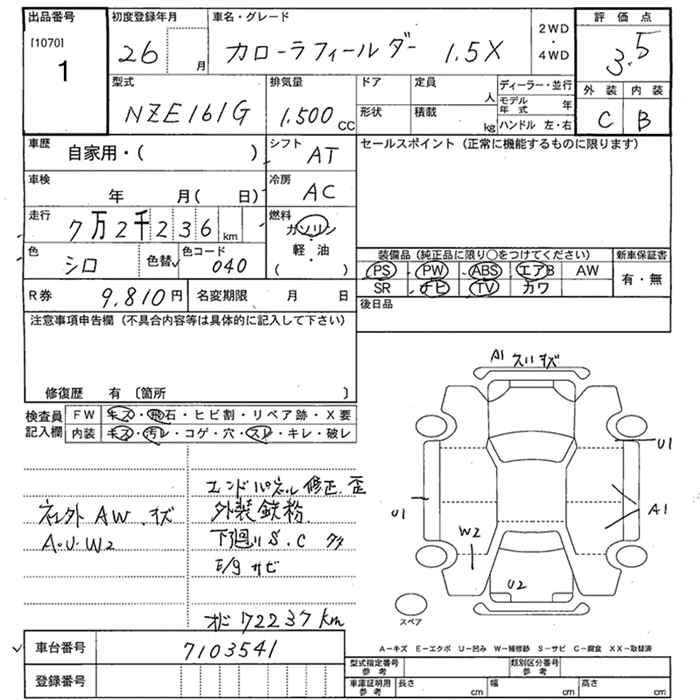 出品番号 初度登録年月 車名・グレード 2WD・4WD 評価点
[1070] 1 26 月 カローラフィールダー 1.5X 3.5
型式 排気量 ドア 定員 人 ディーラー・並行 モデル年式 年 外装 内装
NZE161G 1.500 CC 形状 積載 kg ハンドル 左・右 C B
車歴 自家用・( ) シフト AT セールスポイント (正常に機能するものに限ります)
車検 年 月( 日) 冷房 AC
走行 7万2千236 km 燃料 ガソリン 軽・油 ( )
色 シロ 色替 色コード 040
装備品 (純正品に限り○をつけてください) 新車保証書
PS PW ABS エアB AW 有・無
SR ナビ TV カワ
R券 9,810円 名変期限 月 日 後日品
注意事項申告欄 (不具合内容等は具体的に記入して下さい)
修復歴 有 〔箇所 〕
検査員記入欄 FW キズ・飛石・ヒビ割・リペア跡・X要
内装 キズ・汚レ・コゲ・穴・スレ・キレ・破レ
エンドパネル修正.歪
AW.キズ 外装鉄粉
A・U・W2 下廻りS.C
E/g サビ
72237km
A1 スリキズ
U1
U1
A1
W2
U2
スペア
A－キズ E－エクボ U－凹み W－補修跡 S－サビ C－腐食 XX－取替済
車台番号 7103541
登録番号
型式指定番号 参考 類別区分番号 参考
車庫証明用 参考 長さ cm 幅 cm 高さ cm